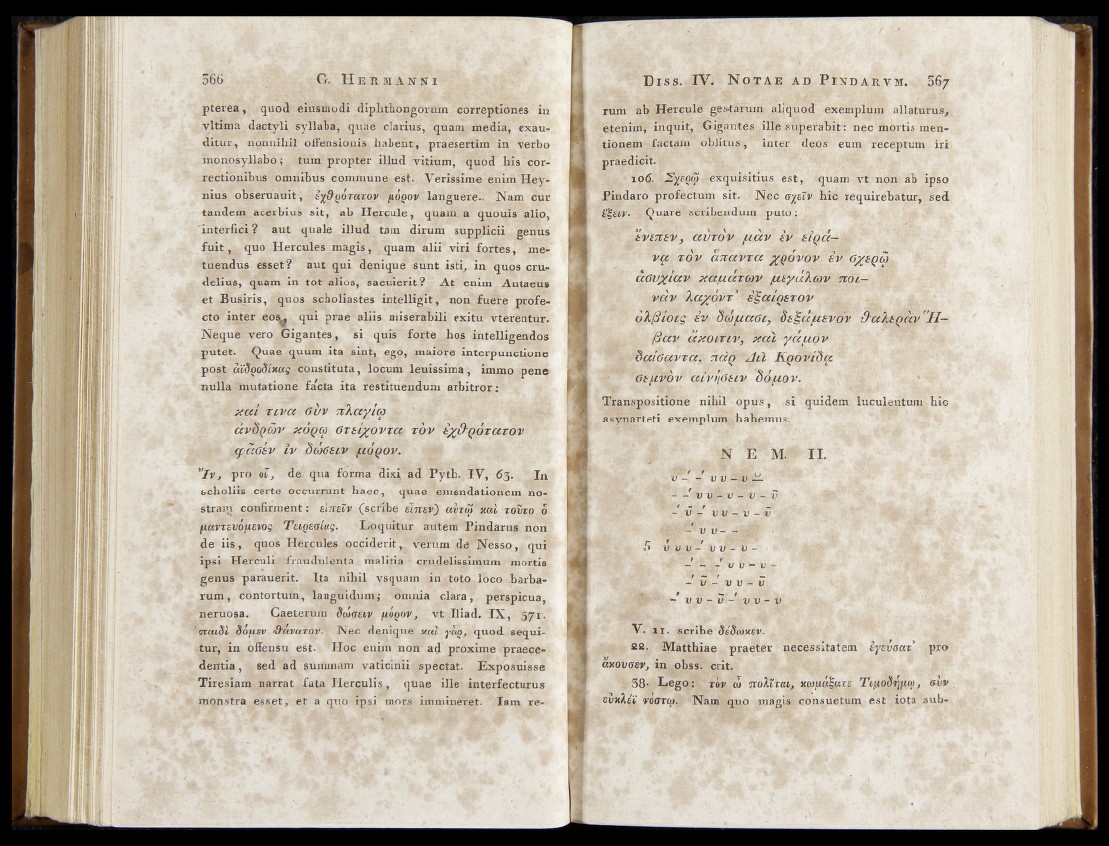 366 G. HERMANNI
pterea, quod eiusmodi diphthongorum correptiones in
vltima dactyli syllaba, quae clarius, quam media, exau-
ditur, nonnihil offensionis habent, praesertim in verbo
monosyllabo; tum propter illud vitium, quod his cor-
rectionibus omnibus commune est. Verissime enim Hey-
nius obseruauit, ἐχθρότατον μόρον languere. Nam cur
tandem acerbius sit, ab Hercule, quam a quouis alio,
interfici? aut quale illud tam dirum supplicii genus
fuit, quo Hercules magis, quam alii viri fortes, me-
tuendus esset? aut qui denique sunt isti, in quos cru-
delius, quam in tot alios, saeuierit? At enim Antaeus
et Busiris, quos scholiastes intelligit, non fuere profe-
cto inter eos, qui prae aliis miserabili exitu vterentur.
Neque vero Gigantes, si quis forte hos intelligendos
putet. Quae quum ita sint, ego, maiore interpunctione
post ἀϊδροδίκας constituta, locum leuissima, immo pene
nulla mutatione facta ita restituendum arbitror:
καί τινα σὺν πλαγίῳ
ἀνδρῶν κόρῳ στείχοντα τὸν ἐχθρότατον
φᾶσέν ἱν δώσειν μόρον.
Ἵν, pro οἷ, de qua forma dixi ad Pyth. IV, 63. In
scholiis certe occurrunt haec, quae emendationem no-
stram confirment: εἰπεῖν (scribe εἶπεν) αὐτῷ καὶ τοῦτο ὁ
μαντευόμενος Τειρεσίας. Loquitur autem Pindarus non
de iis, quos Hercules occiderit, verum de Nesso, qui
ipsi Herculi fraudulenta malitia crudelissimum mortis
genus parauerit. Ita nihil vsquam in toto loco barba-
rum, contortum, languidum; omnia clara, perspicua,
neruosa. Caeterum δώσειν μόρον, vt Iliad. IX, 571.
παιδὶ δόμεν θάνατον. Nec denique καὶ γὰρ, quod sequi-
tur, in offensu est. Hoc enim non ad proxime praece-
dentia, sed ad summam vaticinii spectat. Exposuisse
Tiresiam narrat fata Herculis, quae ille interfecturus
monstra esset, et a quo ipsi mors immineret. Iam re-
DISS. IV. NOTAE AD PINDARVM. 367
rum ab Hercule gestarum aliquod exemplum allaturus,
etenim, inquit, Gigantes ille superabit: nec mortis men-
tionem factam oblitus, inter deos eum receptum iri
praedicit.
106. Σχερῷ exquisitius est, quam vt non ab ipso
Pindaro profectum sit. Nec σχεῖν hic requirebatur, sed
ἕξειν. Quare scribendum puto:
ἔνεπεν, αὐτὸν μὰν ἐν εἰρά-
νᾳ τὸν ἅπαντα χρόνον ἐν σχερῷ
ἁσυχίαν καμάτων μεγάλων ποι-
νὰν λαχόντ’ ἐξαίρετον
ὀλβίοις ἐν δώμασι, δεξάμενον θαλερὰν Ἥ-
βαν ἄκοιτιν, καὶ γάμον
δαίσαντα, πὰρ Διῒ Κρονίδᾳ
σεμνὸν αἰνήσειν δόμον.
Transpositione nihil opus, si quidem luculentum hic
asynarteti exemplum habemus.
N E M. II.
υ –́ –́ υ υ – υ –
– –́ υ υ – υ – υ – υ
–́ υ –́ υ υ – υ – υ
–́ υ υ – –
5 υ υ υ –́ υ υ – υ –
–́ – –́ υ υ – υ –
–́ υ –́ υ υ – υ
–́ υ υ – υ –́ υ υ – υ
V. 11. scribe δέδωκεν.
22. Matthiae praeter necessitatem ἐγεύσατ’ pro
ἄκουσεν, in obss. crit.
38. Lego: τὸν ὦ πολῖται, κωμάξατε Τιμοδήμῳ, σὺν
εὐκλέϊ νόστῳ. Nam quo magis consuetum est iota sub-